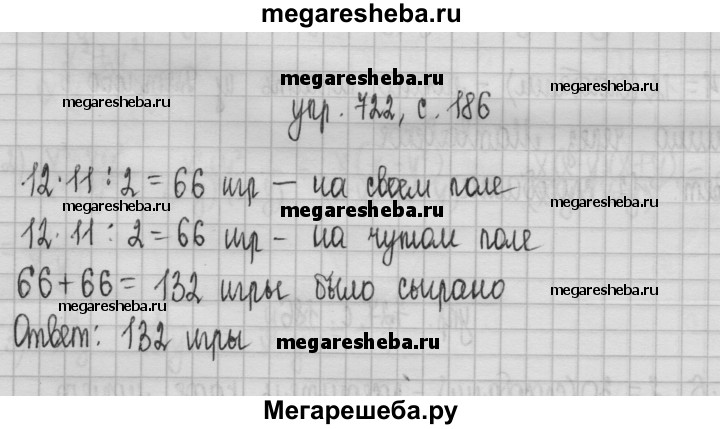 megaresheba.ru
megaresheba.ru
megaresheba.ru megaresheba.ru
упр. 722, с. 186
12·11:2=66 игр — на своем поле
megaresheba.ru megaresheba.ru megaresheba.ru
12·11:2=66 игр - на чужом поле
66+66=132 игры было сыграно
megaresheba.ru megaresheba.ru
Ответ: 132 игры
megaresheba.ru
Мегарешеба.ру